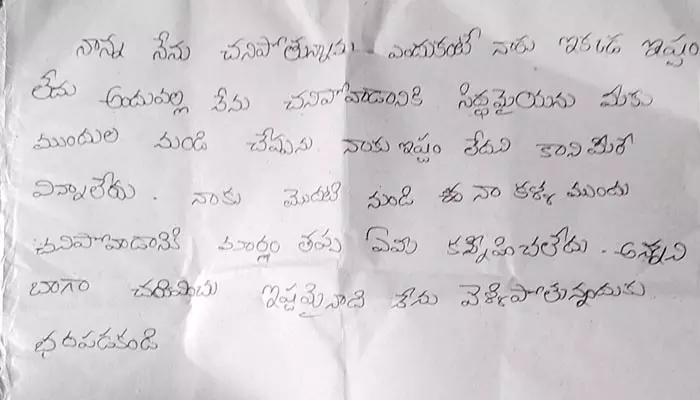 నాన్న నేను చనిపోతున్నాను ఎందుకంటే నాకు ఇక్కడ ఇష్టం
లేదు అందువల్ల నేను చనిపోవాడానికి సిద్ధమైయను మీకు
ముందుల నుండి చేప్పును నాకు ఇష్టం లేదని కాని మీరే
విన్నాలేదు. నాకు మొదటి నుండి ఈ నా కళ్ళ ముందు
చనిపోవాడానికి మార్గం తప్ప ఏమి కన్పించలేదు.
బాగా చదివించు నేను వెళ్ళిపోతున్నందుకు